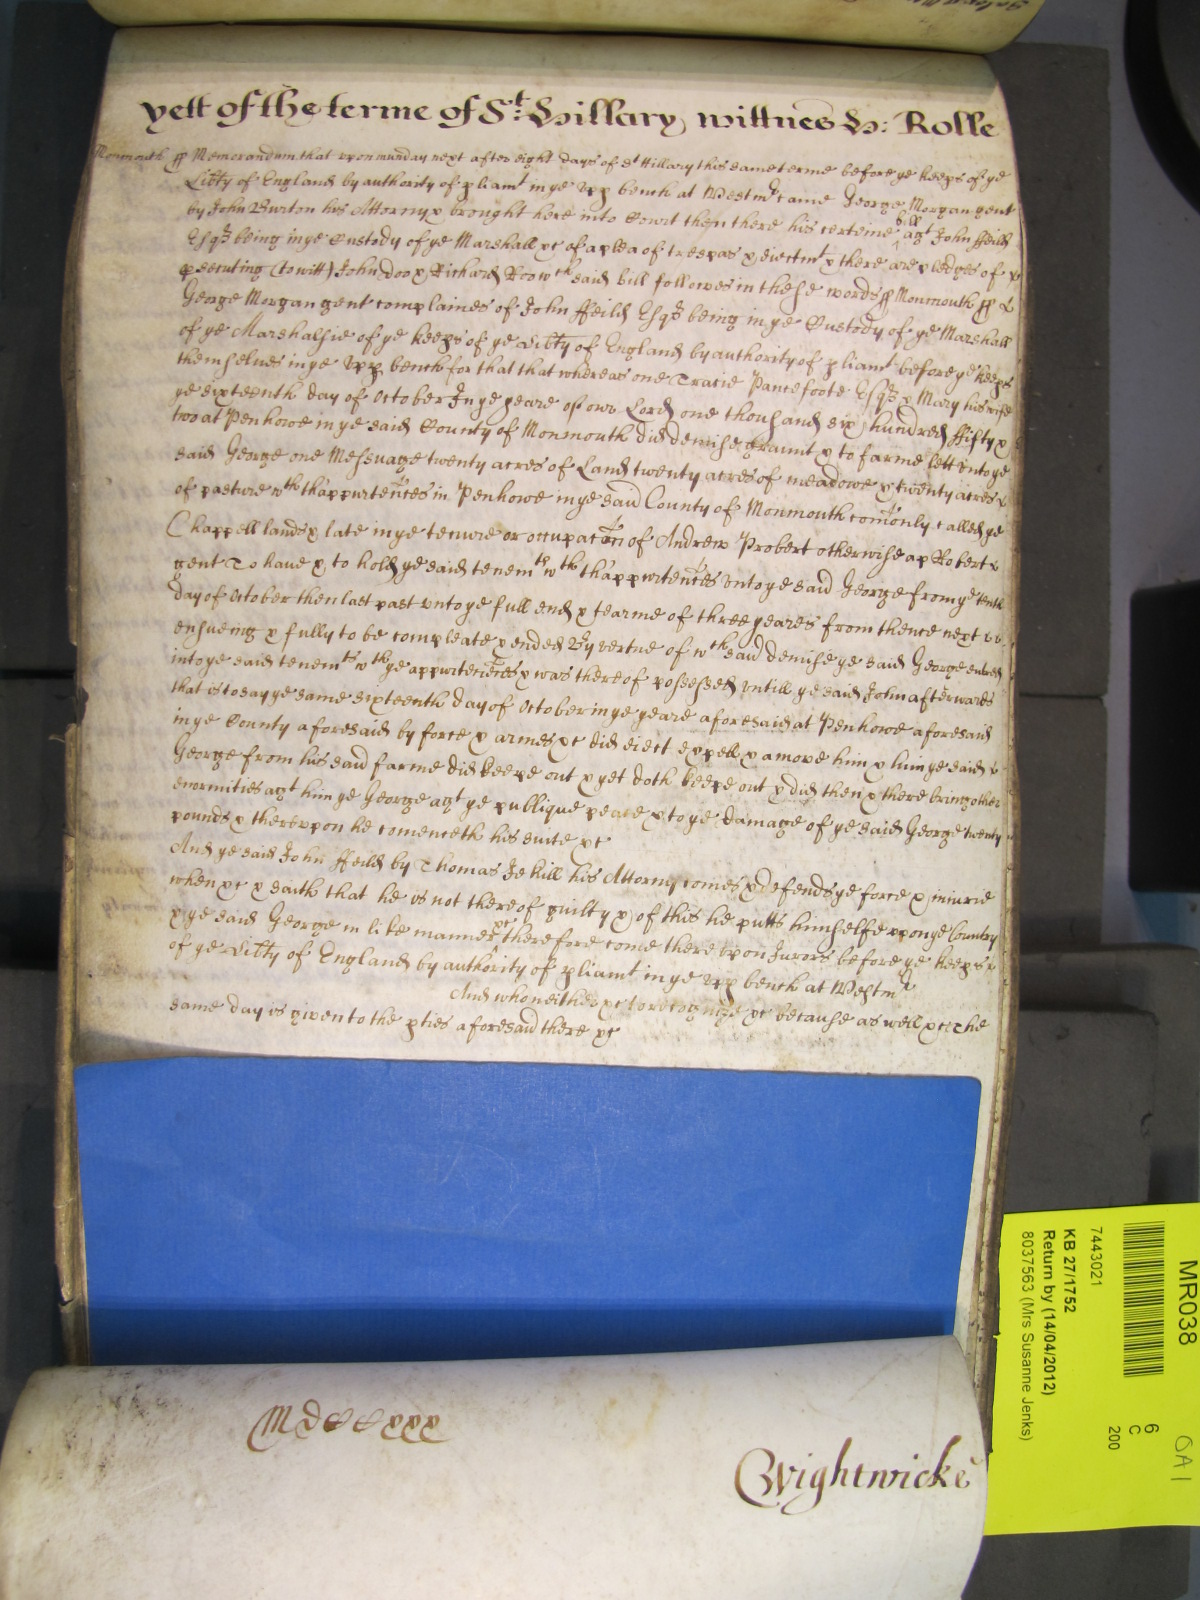 yett of the terme of St: Hillary wittnes H: Rolle
Monmouth ss Memorandum that upon munday next after eight days of St Hillary this same terme before ye keeps of ye
Libty of England by authority of pliamt in ye upp bench at Westmr came George Morgan gent
by John Burton his Attorny & brought here into Court then there his certeine bill agt John ffeild
Esqr being in ye Custody of ye Marshall &c of a plea of trespas & eiectmt & there are pledges of
psecuting (to witt) John doo & Richard Roo wch said bill followes in these words ss Monmouth ss
George Morgan gent complaines of John ffeild Esqr being in ye Custody of ye Marshall
of ye Marshalsie of ye keeps of ye Libty of England by authority of pliamt before ye keeps
themselves in ye upp bench for that that whereas one Tracie Pancefoote Esqr & Mary his wife
ye sixteenth day of October In ye yeare of our Lord one thousand six hundred ffifty &
two at Penhowe in ye said County of Monmouth did demise graunt & to farme lett unto ye
said George one Messuage twenty acres of Land twenty acres of meadowe & twenty acres
of pasture wth thappurtences in Penhowe in ye said County of Monmouth comonly called ye
Chappell lands & late in ye tenure or occupacon of Andrew Probert otherwise ap Robert
gent To have & to hold ye said tenemts wth thappurtences unto ye said George from ye tenth
day of October then last past unto ye full end & tearme of three yeares from thence next
ensueing & fully to be compleate & ended By vertue of wch said demise ye said George entred
into ye said tenemts wth ye appurtences & was thereof possessed untill ye said John afterwards
that is to say ye same sixteenth day of October in ye yeare aforesaid at Penhowe aforesaid
in ye County aforesaid by force & armes &c did eiect expell & amove him & him ye said
George from his said farme did keepe out & yet doth keepe out & did then & there bring other
enormities agt him ye George agt ye publique peace & to ye damage of ye said George twenty
pounds & thereupon he comenceth his suite &c
And ye said John ffeild by Thomas Jekill his Attorny comes & defends ye force & iniurie
when &c & saith that he is not thereof guilty & of this he putts himselfe upon ye Country
& ye said George in like manner &c therefore come thereupon Jurors before ye keeps
of ye Libty of England by authority of pliamt in ye upp bench at Westmr
And who neither &c to recognize &c because as well &c The
same day is given to the pties aforesaid there &c
Mdccxxx
Wightwicke
MR038
7443021
KB 27/1752
Return by (14/04/2012)
8037563 (Mrs Susanne Jenks)
6
C
200
OA1